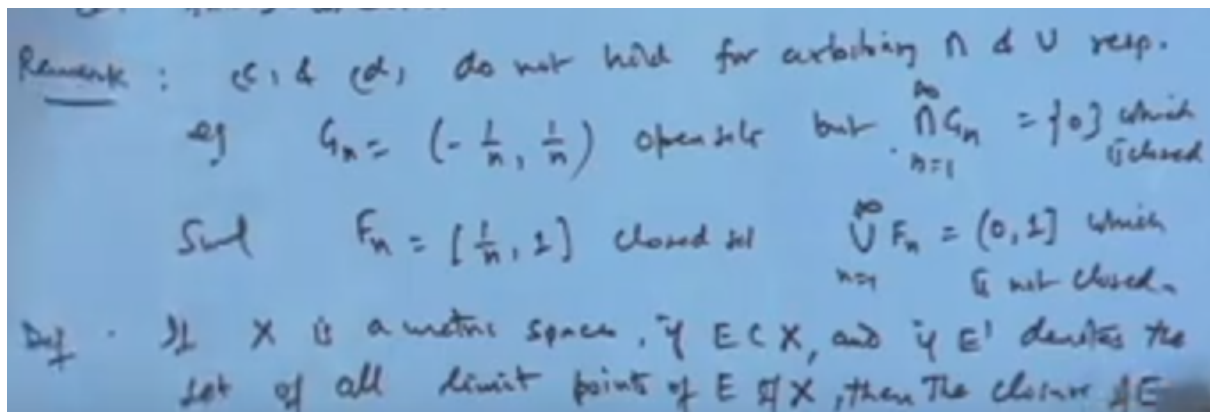 Remark : (c) & (d) do not hold for arbitrary ∩ & ∪ resp.
eg Gₙ = (-1/n, 1/n) open sets but ∩_{n=1}^∞ Gₙ = {0} which is closed
Sml Fₙ = [1/n, 1] closed set ∪_{n=1}^∞ Fₙ = (0, 1] which is not closed.
Def. If X is a metric space, if E ⊂ X, and if E' denotes the
set of all limit points of E of X, then The closure of E